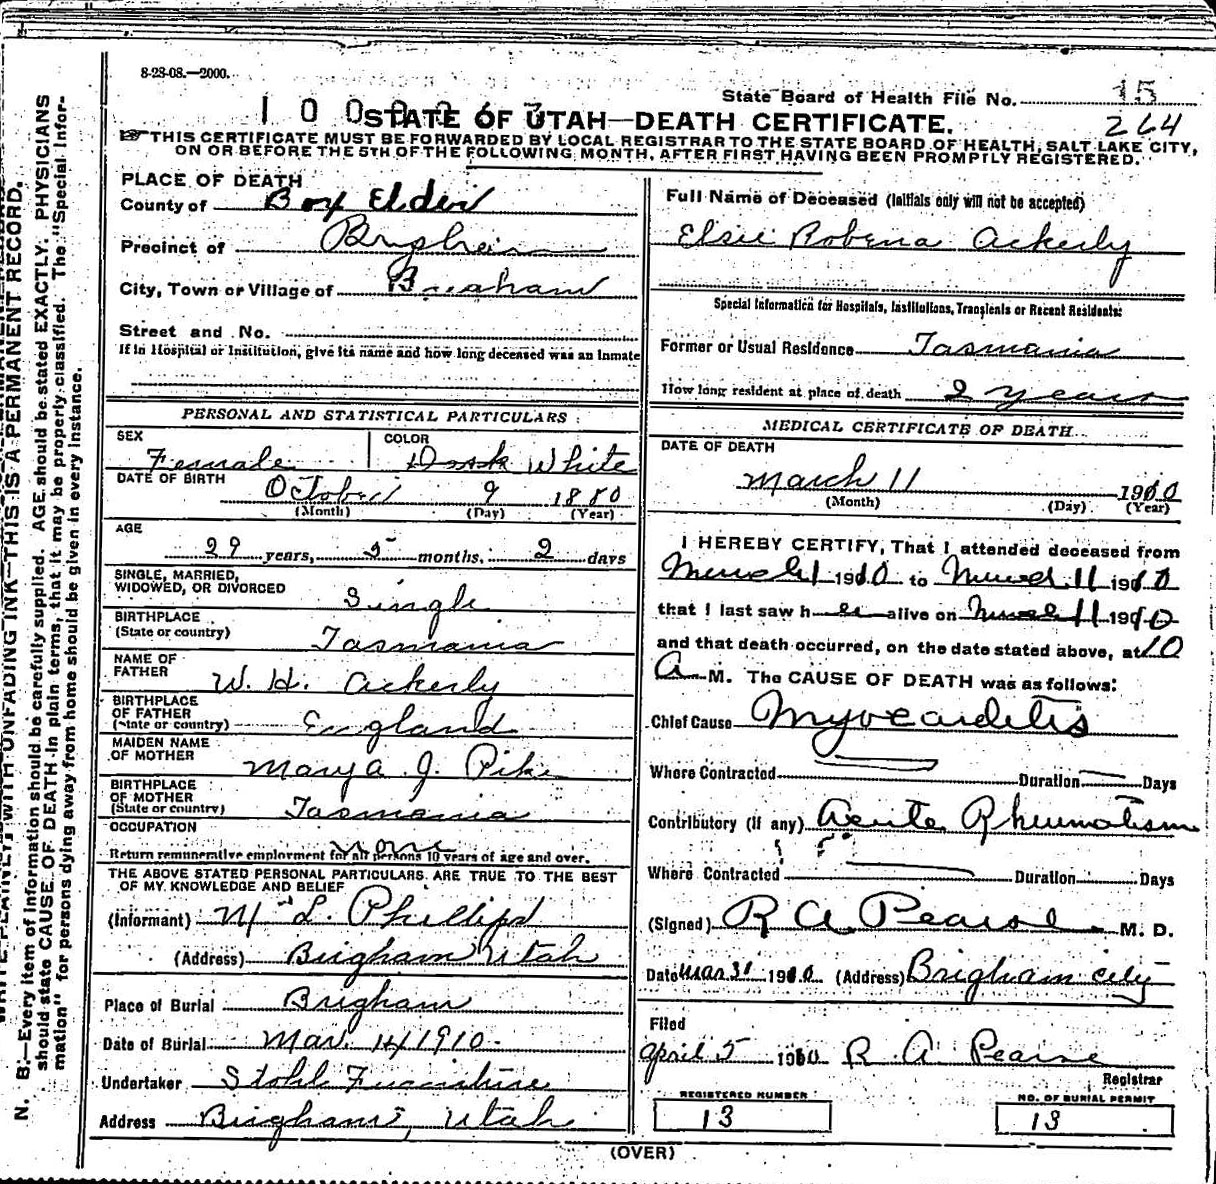 8-28-08.—2000.
State Board of Health File No. 15
264
STATE OF UTAH—DEATH CERTIFICATE.
THIS CERTIFICATE MUST BE FORWARDED BY LOCAL REGISTRAR TO THE STATE BOARD OF HEALTH, SALT LAKE CITY,
ON OR BEFORE THE 5TH OF THE FOLLOWING MONTH, AFTER FIRST HAVING BEEN PROMPTLY REGISTERED.
PLACE OF DEATH
County of Box Elder
Precinct of Brigham
City, Town or Village of Brigham
Street and No.
If in Hospital or Institution, give its name and how long deceased was an inmate
PERSONAL AND STATISTICAL PARTICULARS
SEX
Female
COLOR
Dark White
DATE OF BIRTH
October 9 1880
(Month) (Day) (Year)
AGE
29 years, 5 months, 2 days
SINGLE, MARRIED,
WIDOWED, OR DIVORCED
Single
BIRTHPLACE
(State or country)
Tasmania
NAME OF
FATHER
W. H. Ackerly
BIRTHPLACE
OF FATHER
(State or country)
England
MAIDEN NAME
OF MOTHER
Marya J. Pike
BIRTHPLACE
OF MOTHER
(State or country)
Tasmania
OCCUPATION
none
Return remunerative employment for all persons 10 years of age and over.
THE ABOVE STATED PERSONAL PARTICULARS ARE TRUE TO THE BEST
OF MY KNOWLEDGE AND BELIEF
(Informant) N L Phillips
(Address) Brigham Utah
Place of Burial Brigham
Date of Burial Mar. 14 1910.
Undertaker Stohl Furniture
Address Brigham, Utah
Full Name of Deceased (Initials only will not be accepted)
Elsie Robena Ackerly
Special Information for Hospitals, Institutions, Transients or Recent Residents:
Former or Usual Residence Tasmania
How long resident at place of death 2 years
MEDICAL CERTIFICATE OF DEATH
DATE OF DEATH
March 11 1910
(Month) (Day) (Year)
I HEREBY CERTIFY, That I attended deceased from
March 1 1910 to March 11 1910
that I last saw her alive on March 11 1910
and that death occurred, on the date stated above, at 10
A M. The CAUSE OF DEATH was as follows:
Chief Cause Myocarditis
Where Contracted Duration Days
Contributory (if any) Acute Rheumatism
Where Contracted Duration Days
(Signed) R A Pearse M. D.
Date Mar 31 1910 (Address) Brigham City
Filed
April 5 1910 R A Pearse
Registrar
REGISTERED NUMBER
13
NO. OF BURIAL PERMIT
13
(OVER)
N. B.—Every item of information should be carefully supplied. AGE should be stated EXACTLY. PHYSICIANS
should state CAUSE OF DEATH in plain terms, that it may be properly classified. The "Special Infor-
mation" for persons dying away from home should be given in every instance.
WITH UNFADING INK—THIS IS A PERMANENT RECORD.